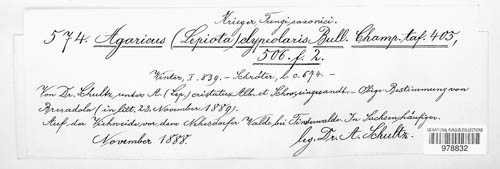 Krieger, Fungi saxonici.
574. Agaricus (Lepiota) clypeolaris Bull. Champ. taf. 405,
506. f. 2.
Winter, I. 839. – Schröter, l. c. 674. –
Von Dr. Schultz unter A. (Lep.) cristatus Alb. et Schw. eingesandt. – Obige Bestimmung von
Bresadola (in litt. 23. November 1889).
Auf der Viehweide vor dem Nehesdorfer Walde bei Finsterwalde. In Sachsen häufiger.
November 1888. leg. Dr. A. Schultz.
US NATIONAL FUNGUS COLLECTIONS
978832